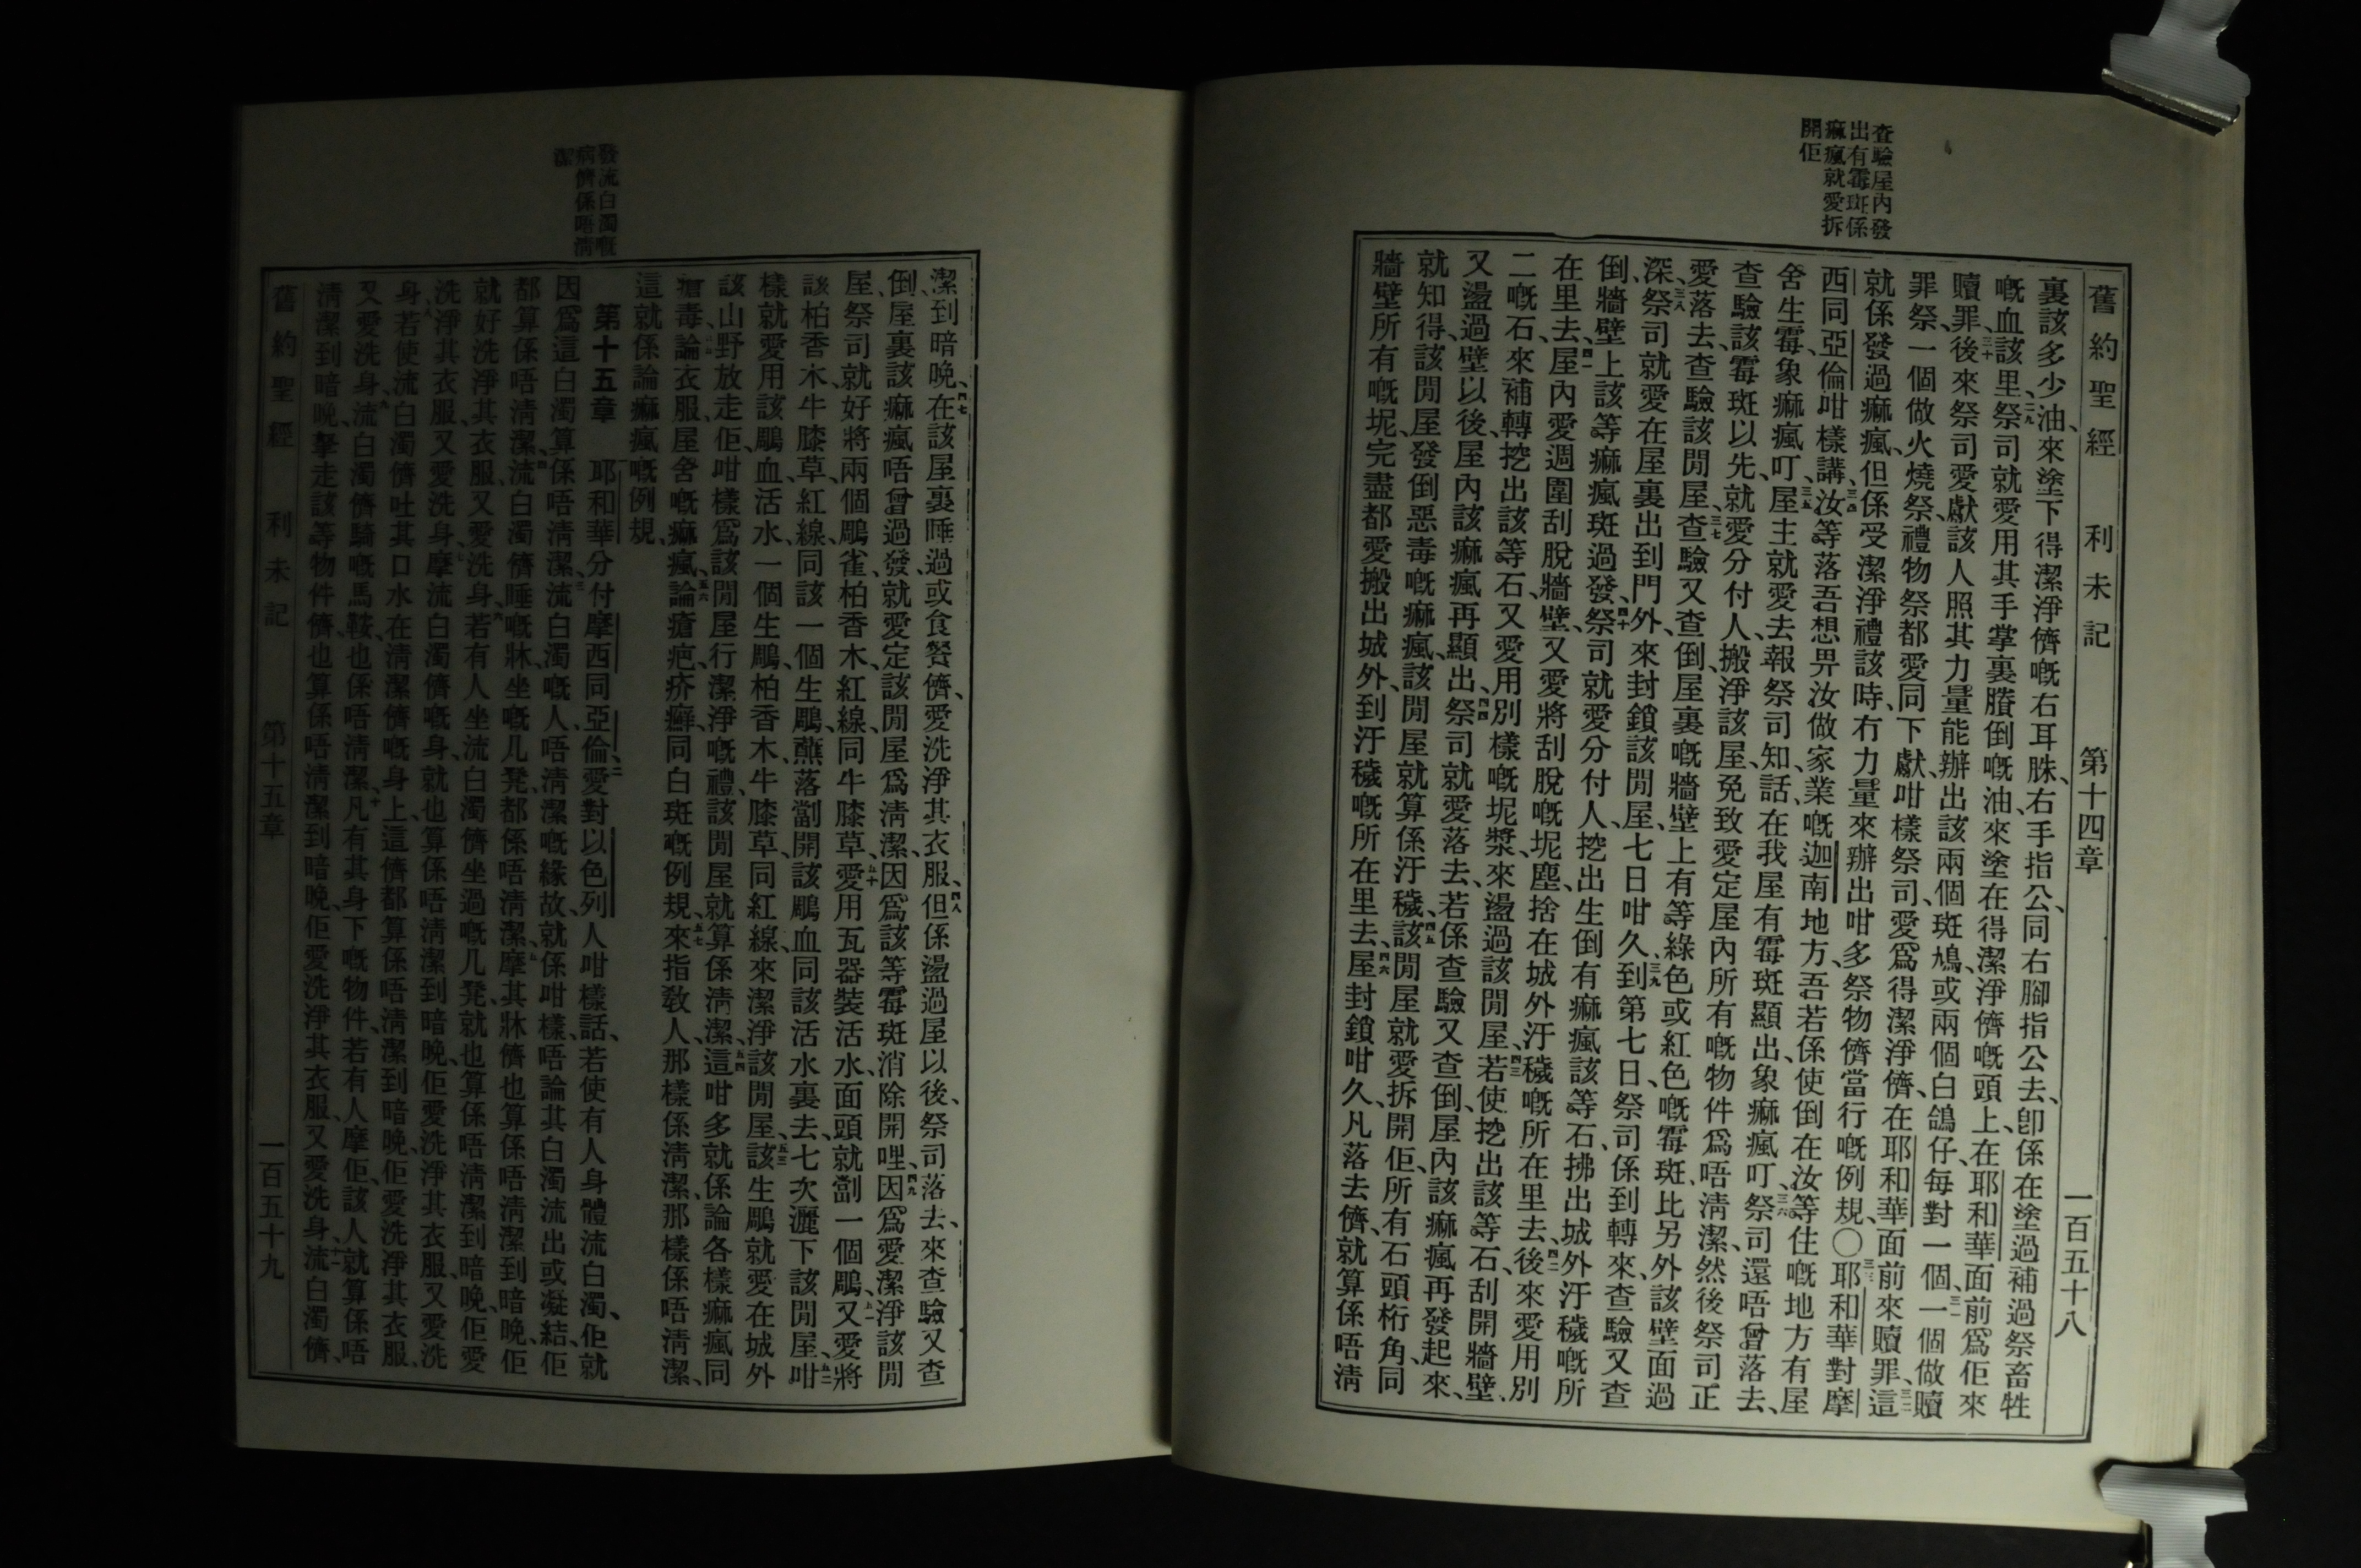 舊約聖經 利未記 第十四章 一百五十八
查驗屋內發
出有霉斑係
痲瘋就愛拆
開佢
裏該多少油、來塗下得潔淨儕嘅右耳腄、右手指公、同右腳指公去、卽係在塗過補過祭畜牲
嘅血該里、二九祭司就愛用其手掌裏賸倒嘅油、來塗在得潔淨儕嘅頭上、在耶和華面前爲佢來
贖罪、三十後來祭司愛獻該人照其力量能辦出該兩個斑鳩、或兩個白鴿仔、每對一個、三一一個做贖
罪祭、一個做火燒祭、禮物祭都愛同下獻、咁樣祭司、愛爲得潔淨儕、在耶和華面前來贖罪、三二這
就係發過痲瘋、但係受潔淨禮該時、冇力量來辦出咁多祭物儕當行嘅例規、〇三三耶和華對摩
西同亞倫咁樣講、三四汝等落吾想畀汝做家業嘅迦南地方、吾若係使倒在汝等住嘅地方有屋
舍生霉象痲瘋叮、三五屋主就愛去報祭司知、話、在我屋有霉斑顯出、象痲瘋叮、三六祭司還唔曾落去、
查驗該霉斑以先、就愛分付人、搬淨該屋、免致愛定屋內所有嘅物件爲唔淸潔、然後祭司正
愛落去、查驗該閒屋、三七查驗又查倒、屋裏嘅牆壁上有等綠色或紅色嘅霉斑、比另外該壁面過
深、三八祭司就愛在屋裏出到門外、來封鎖該閒屋、七日咁久、三九到第七日、祭司係到轉來、查驗又查
倒、牆壁上該等痲瘋斑過發、四十祭司就愛分付人、挖出生倒有痲瘋該等石、拂出城外汙穢嘅所
在里去、四一屋內愛週圍刮脫牆壁、又愛將刮脫嘅坭塵、捨在城外汙穢嘅所在里去、四二後來愛用別
二嘅石、來補轉挖出該等石、又愛用別樣嘅坭漿、來盪過該閒屋、四三若使挖出該等石、刮開牆壁、
又盪過壁以後、屋內該痲瘋再顯出、四四祭司就愛落去、若係查驗又查倒、屋內該痲瘋再發起來、
就知得、該閒屋、發倒惡毒嘅痲瘋、該閒屋就算係汙穢、四五該閒屋就愛拆開佢、所有石頭桁角、同
牆壁所有嘅坭、完盡都愛搬出城外、到汙穢嘅所在里去、四六屋封鎖咁久、凡落去儕、就算係唔淸
發流白濁嘅
病儕係唔淸
潔
潔到暗晚、四七在該屋裏睡過或食餐儕、愛洗淨其衣服、四八但係盪過屋以後、祭司落去、來查驗又查
倒、屋裏該痲瘋唔曾過發、就愛定該閒屋爲淸潔、因爲該等霉斑消除開哩、四九因爲愛潔淨該閒
屋、祭司就好將兩個鵰雀、柏香木、紅線、同牛膝草、五十愛用瓦器裝活水、面頭就劏一個鵰、五一又愛將
該柏香木、牛膝草、紅線、同該一個生鵰、蘸落劏開該鵰血同該活水裏去、七次灑下該閒屋、五二咁
樣就愛用該鵰血、活水、一個生鵰、柏香木、牛膝草、同紅線、來潔淨該閒屋、五三該生鵰就愛在城外
該山野放走佢、咁樣爲該閒屋行潔淨嘅禮、該閒屋就算係淸潔、五四這咁多就係論各樣痲瘋同
瘡毒、五五論衣服、屋舍嘅痲瘋、五六論瘡疤、疥癬、同白斑嘅例規、五七來指敎人、那樣係淸潔、那樣係唔淸潔、
這就係論痲瘋嘅例規、
第十五章 一耶和華分付摩西同亞倫、二愛對以色列人咁樣話、若使有人身體流白濁、佢就
因爲這白濁算係唔淸潔、三流白濁嘅人、唔淸潔嘅緣故、就係咁樣、唔論其白濁流出或凝結、佢
都算係唔淸潔、四流白濁儕睡嘅牀、坐嘅几凳、都係唔淸潔、五摩其牀儕也算係唔淸潔到暗晚、佢
就好洗淨其衣服、又愛洗身、六若有人坐流白濁儕坐過嘅几凳、就也算係唔淸潔到暗晚、佢愛
洗淨其衣服、又愛洗身、七摩流白濁儕嘅身、就也算係唔淸潔到暗晚、佢愛洗淨其衣服、又愛洗
身、八若使流白濁儕吐其口水在淸潔儕嘅身上、這儕都算係唔淸潔到暗晚、佢愛洗淨其衣服、
又愛洗身、九流白濁儕騎嘅馬鞍、也係唔淸潔、十凡有其身下嘅物件、若有人摩佢、該人就算係唔
淸潔到暗晚、拏走該等物件儕、也算係唔淸潔到暗晚、佢愛洗淨其衣服、又愛洗身、十一流白濁儕、
舊約聖經 利未記 第十五章 一百五十九